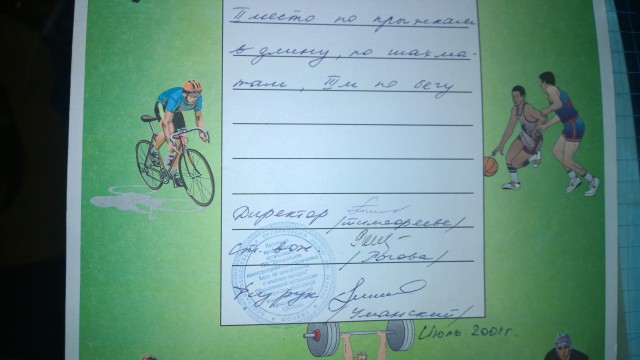 II место по прыжкам
в длину, по шахма-
там, III м по бегу
Директор /Тимофеева/
Ст. вож. /Рогова/
Физ рук /Уманский/
Июль 2001 г.